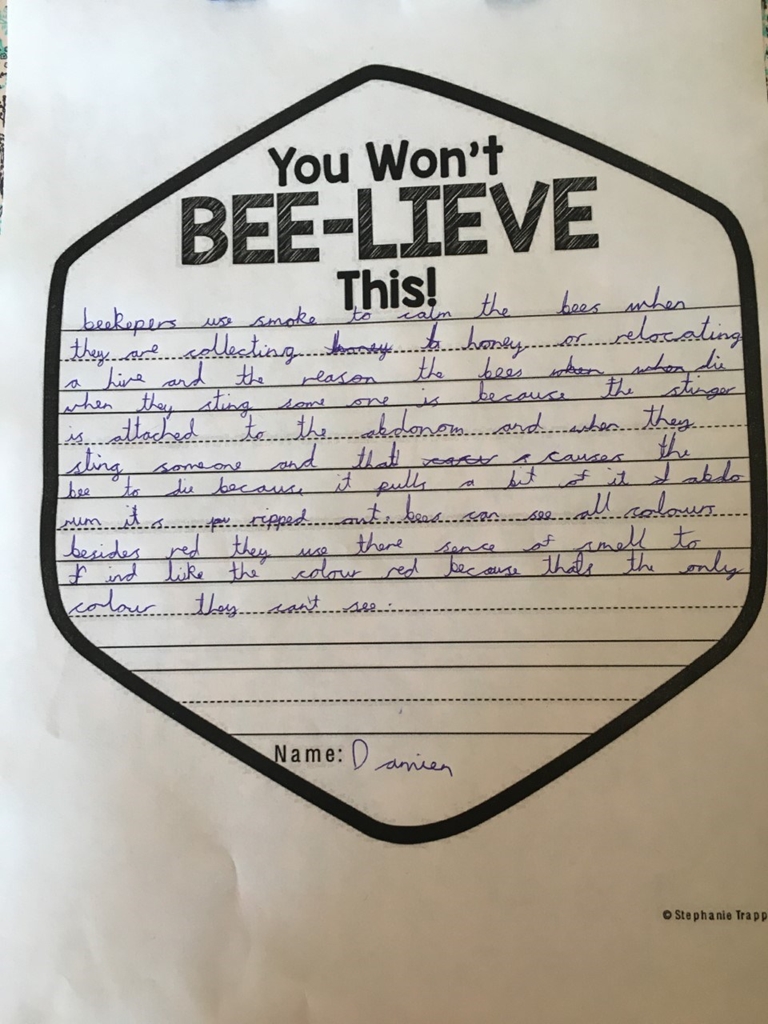 You Won't
BEE-LIEVE
This!
beekepers use smoke to calm the bees when
they are collecting honey or relocating
a hive and the reason the bees die
when they sting some one is because the stinger
is attached to the abdonom and when they
sting someone and that causes the
bee to die because it pulls a bit of it abdo
num it s ripped out. bees can see all colours
besides red they use there sence of smell to
find like the colour red because thats the only
colour they can't see.
Name: Damien
© Stephanie Trapp